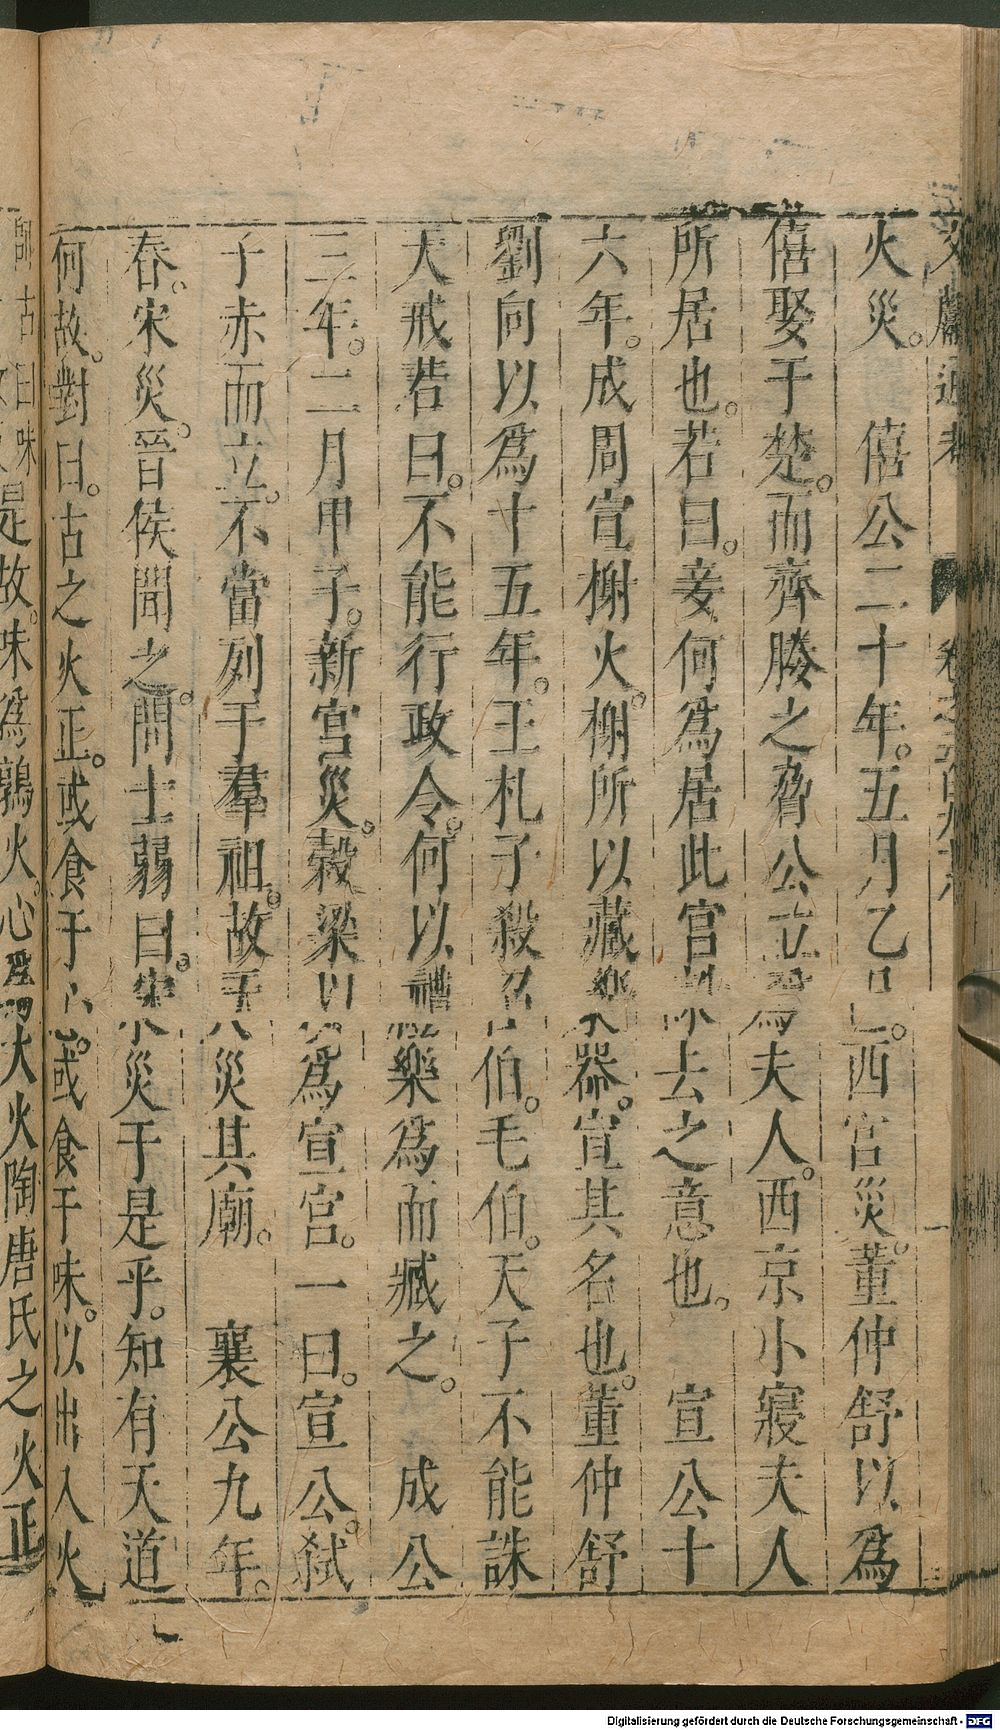 文獻通考 卷之二百九十八
火災。　僖公二十年。五月乙巳。西宮災。董仲舒以爲
僖娶于楚。而齊媵之脅公立爲夫人。西宮小寢夫人
所居也。若曰。妾何爲居此宮誅去之意也。　宣公十
六年。成周宣榭火。榭所以藏樂器。宣其名也。董仲舒
劉向以爲十五年。王札子殺召伯。毛伯。天子不能誅
天戒若曰。不能行政令。何以禮樂爲而臧之。　成公
三年。二月甲子。新宮災。穀梁以爲宣宮。一曰。宣公。弒
子赤而立。不當列于羣祖。故天災其廟。　襄公九年。
春。宋災。晉侯聞之。問士弱曰。宋災于是乎。知有天道
何故。對曰。古之火正。或食于心。或食于咮。以出入火
師古曰味
是故。味爲鶉火。心爲大火陶唐氏之火正
Digitalisierung gefördert durch die Deutsche Forschungsgemeinschaft - DFG